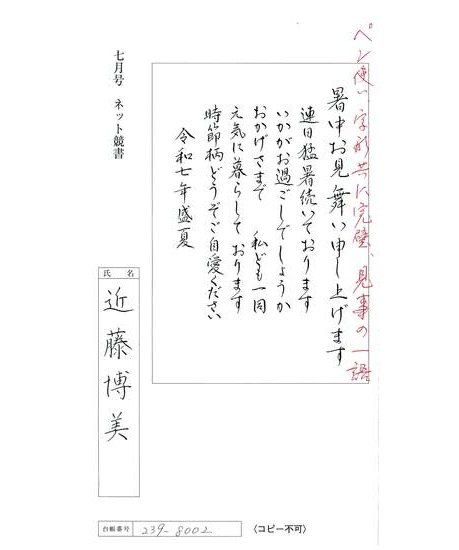 ペン使い字形共に完璧、見事の一語
暑中お見舞い申し上げます
連日猛暑続いております
いかがお過ごしでしょうか
おかげさまで 私ども一同
元気に暮らしております
時節柄どうぞご自愛ください
令和七年盛夏
七月号 ネット競書
氏名
近藤博美
台帳番号 239-8002
〈コピー不可〉